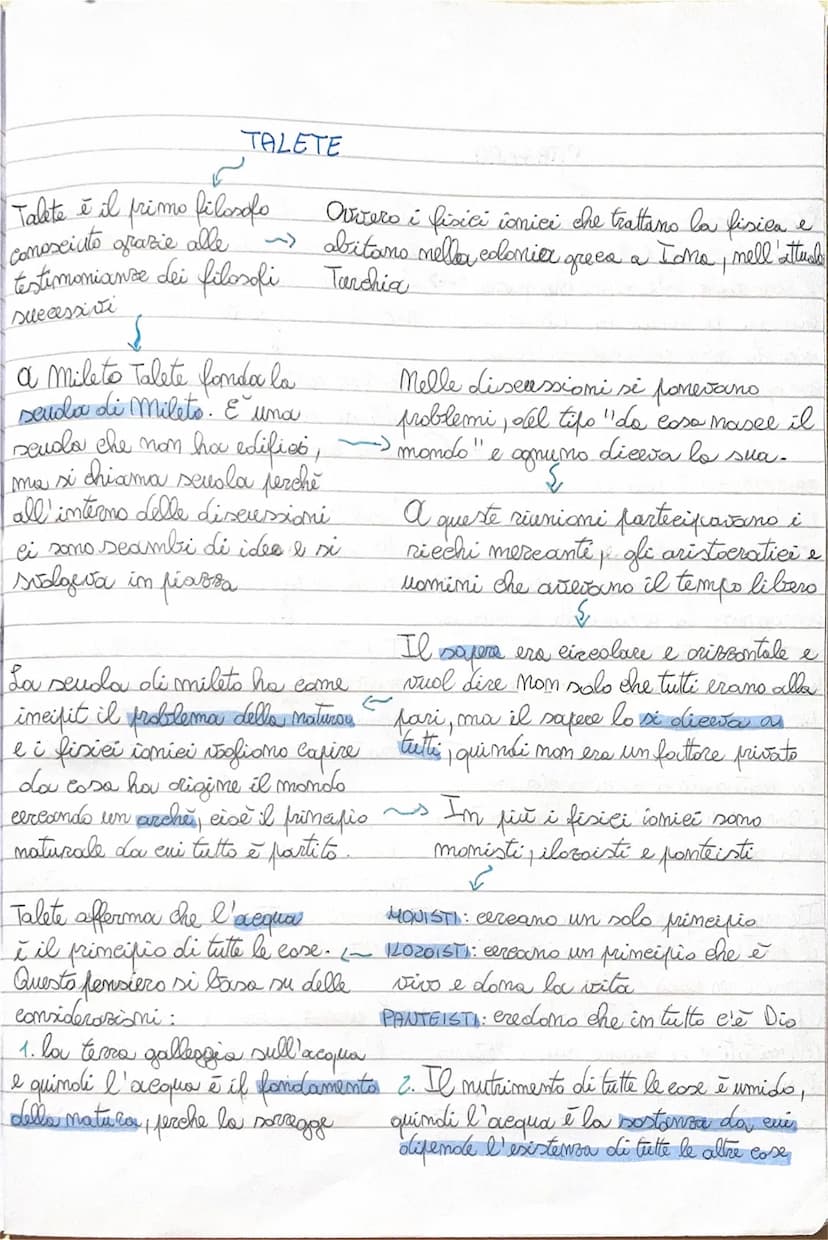 TALETE
Talete è il primo filosofo
conosciuto grazie alle
testimonianze dei filosofi
successivi
Ovvero i fisici ionici che trattano la fisica e
abitano nella colonia greca a Iona, nell'attuale
Turchia
A Mileto Talete fonda la
scuola di Mileto. E' una
scuola che non ha edifici,
ma si chiama scuola perchè
all'interno delle discussioni
ci sono scambi di idee e si
svolgeva in piazza
Nelle discussioni si ponevano
problemi, del tipo "da cosa nasce il
mondo" e ognuno diceva la sua.
A queste riunioni partecipavano i
ricchi mercanti, gli aristocratici e
uomini che avevano il tempo libero
Il sapere era circolare e orizzontale e
vuol dire non solo che tutti erano alla
pari, ma il sapere lo si diceva a
tutti, quindi non era un fattore privato
La scuola di mileto ha come
incipit il problema della natura
e i fisici ionici vogliono capire
da cosa ha origine il mondo
cercando un archè, cioè il principio
naturale da cui tutto è partito.
In più i fisici ionici sono
monisti, ilozoisti e panteisti
MONISTI: cercano un solo principio
ILOZOISTI: cercano un principio che è
vivo e dona la vita
PANTEISTI: credono che in tutto c'è Dio
Talete afferma che l'acqua
è il principio di tutte le cose.
Questo pensiero si basa su delle
considerazioni:
1. la terra galleggia sull'acqua
e quindi l'acqua è il fondamento
della natura, perche la sorregge
2. Il nutrimento di tutte le cose è umido,
quindi l'acqua è la sostanza da cui
dipende l'esistenza di tutte le altre cose